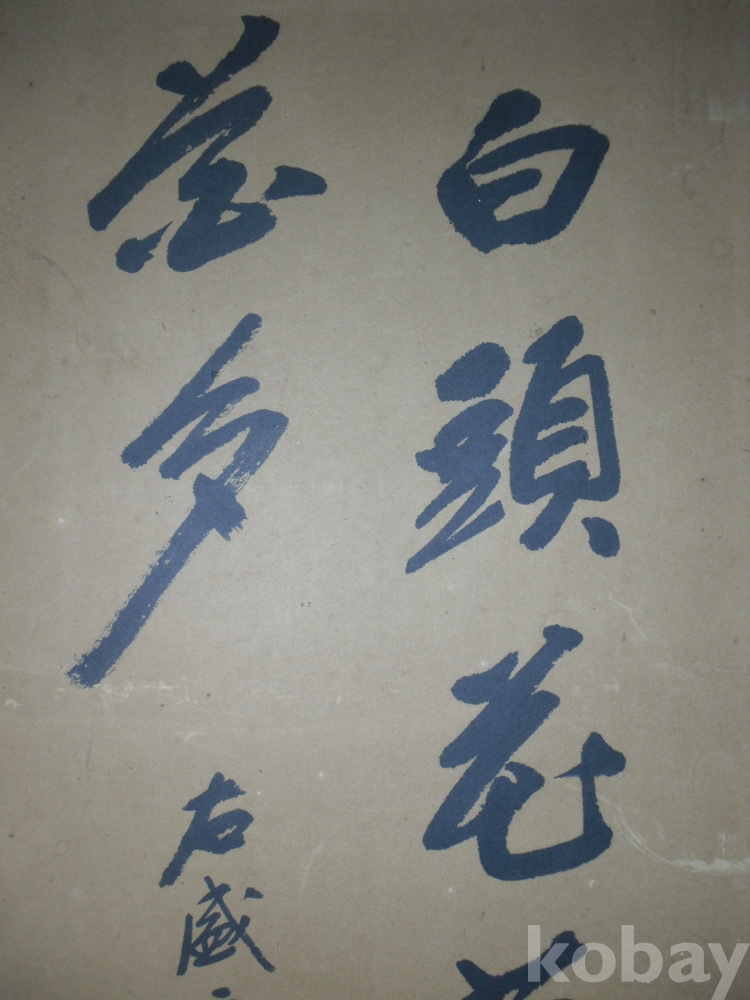 白頭花
多
右盛
kobay